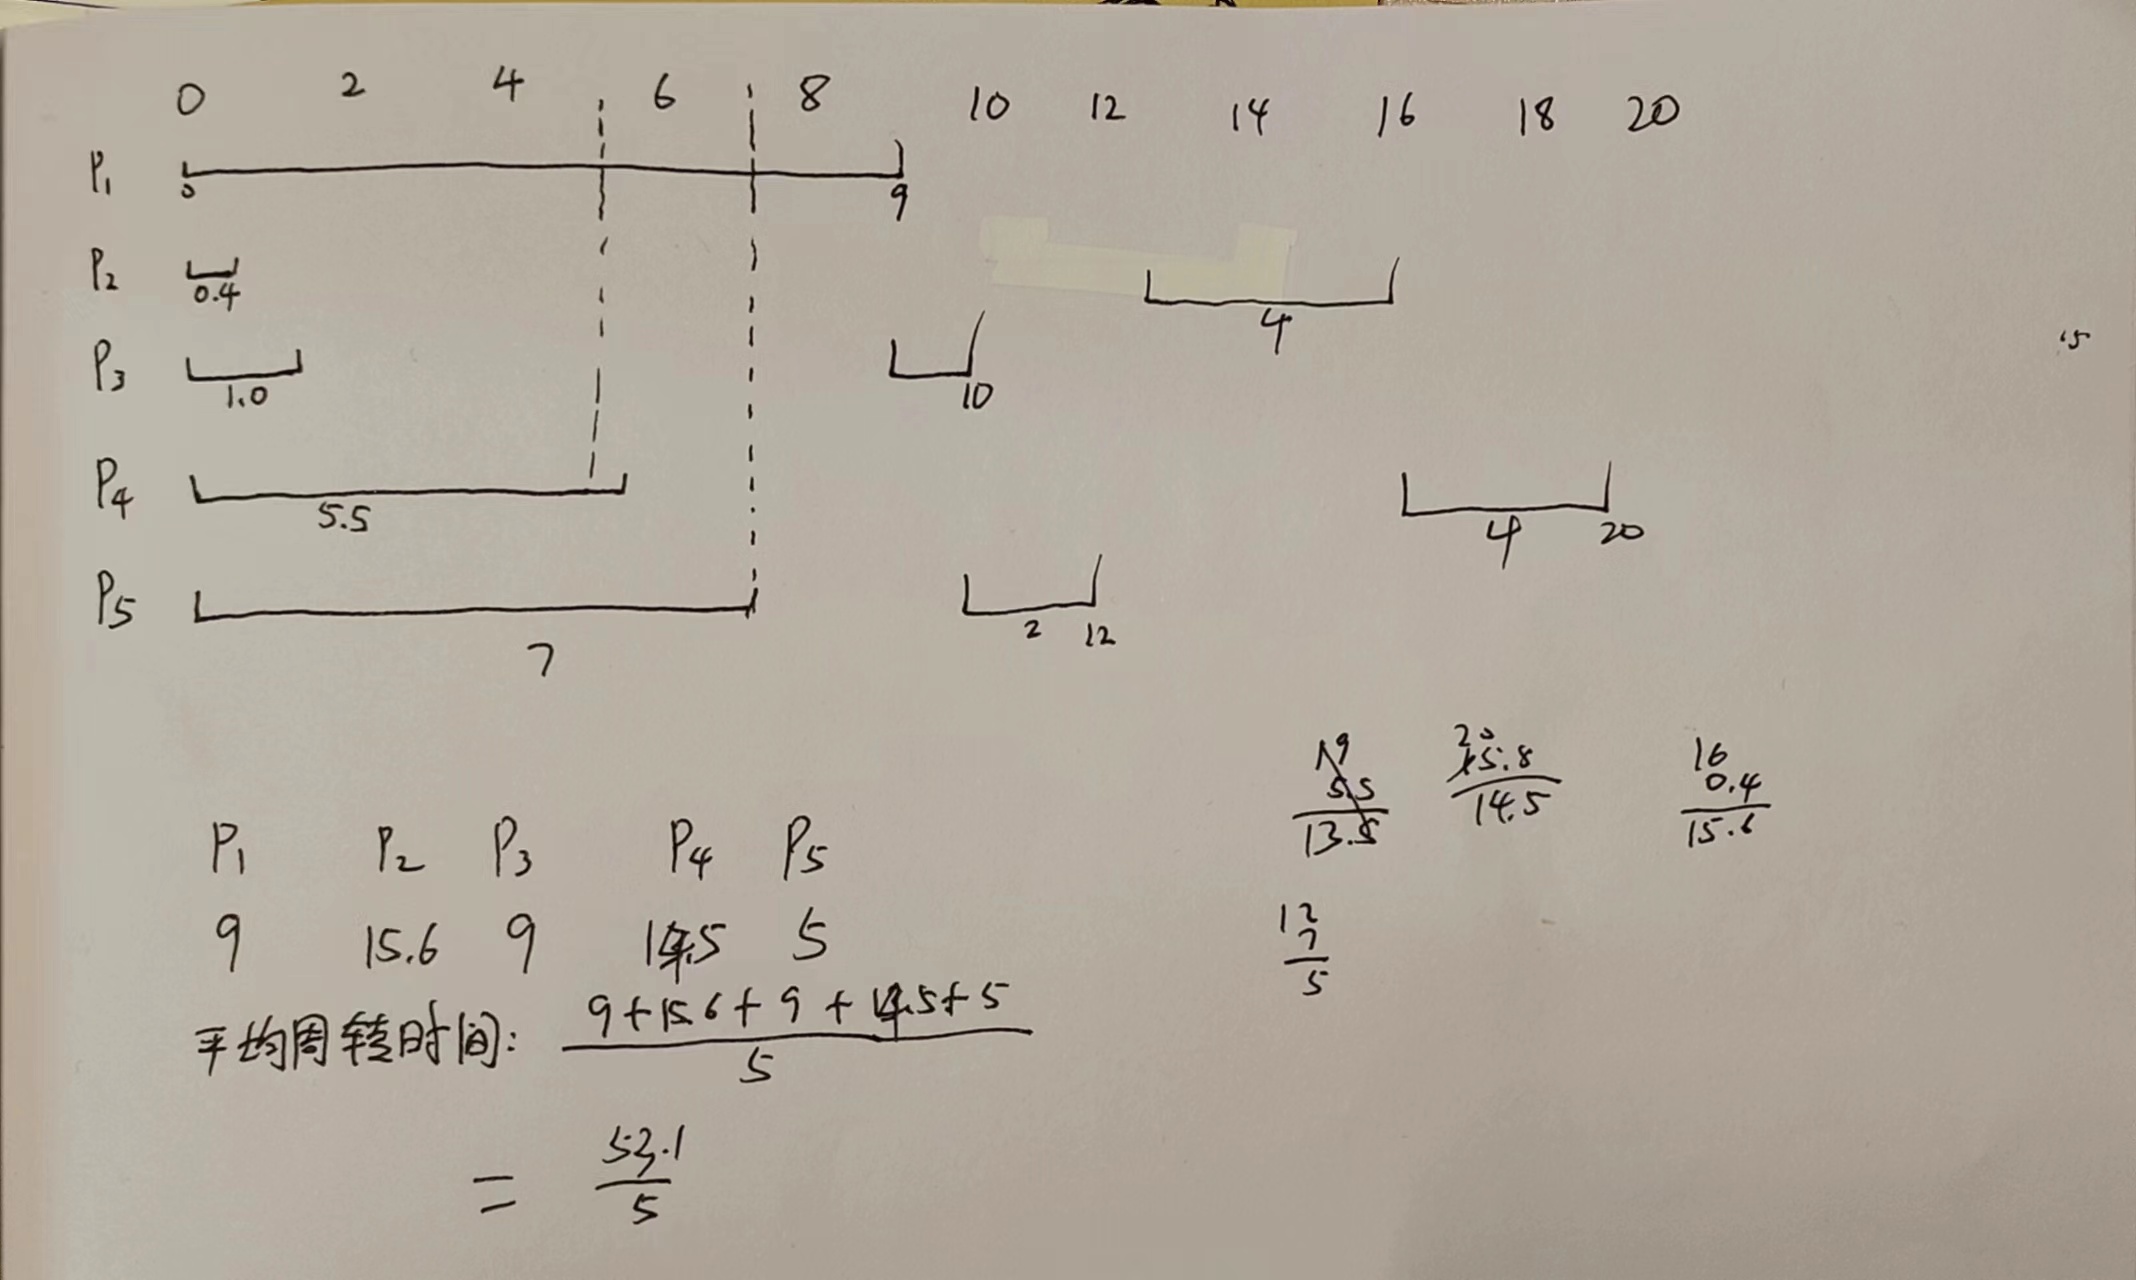 0 2 4 6 8 10 12 14 16 18 20
P1 0 9
P2 0.4 4
P3 1.0 10
P4 5.5 4 20
P5 7 2 12
19 20 16
5.5 5.8 0.4
13.5 14.5 15.6
P1 P2 P3 P4 P5
9 15.6 9 14.5 5
12
7
5
平均周转时间: 9+15.6+9+14.5+5
5
= 53.1
5